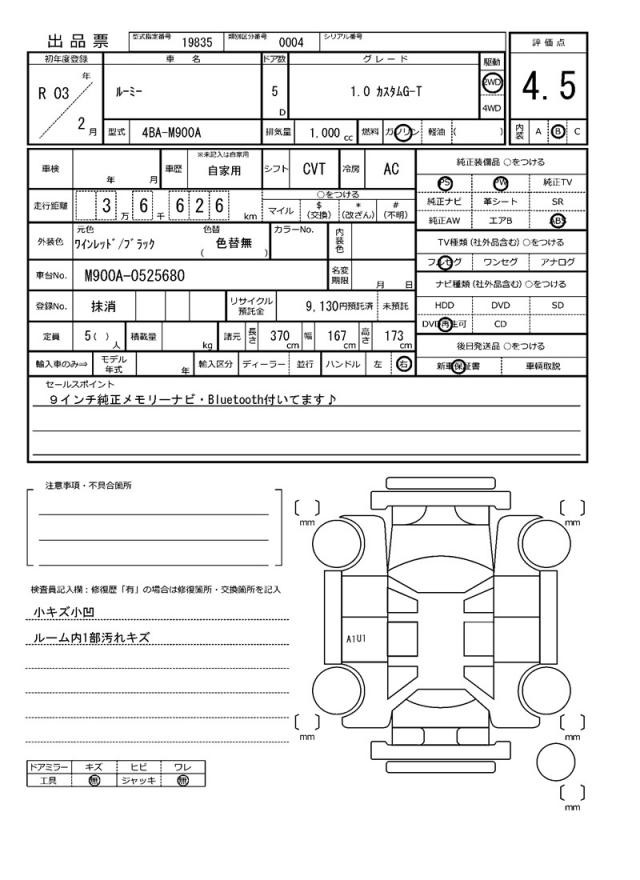 出品票 型式指定番号 19835 類別区分番号 0004 シリアル番号
評価点
4.5
内装 A B C
初年度登録 車名 ドア数 グレード 駆動
R 03 年 2 月 ルーミー 5 D 1.0 カスタムG-T 2WD 4WD
型式 4BA-M900A 排気量 1.000 cc 燃料 ガソリン 軽油 ( )
車検 年 月 車歴 ※未記入は自家用 自家用 シフト CVT 冷房 AC
走行距離 3 万 6 千 6 2 6 km ○をつける
マイル $ (交換) * (改ざん) # (不明)
外装色 元色 ワインレッド/ブラック 色替 ( 色替無 ) カラーNo. 内装色
車台No. M900A-0525680 名変期限 月 日
登録No. 抹消 リサイクル預託金 9,130円預託済 未預託
定員 5 ( ) 人 積載量 kg 諸元 長さ 370 cm 幅 167 cm 高さ 173 cm
輸入車のみ⇒ モデル年式 年 輸入区分 ディーラー 並行 ハンドル 左 右
純正装備品 ○をつける
PS PW 純正TV
純正ナビ 革シート SR
純正AW エアB ABS
TV種類 (社外品含む) ○をつける
フルセグ ワンセグ アナログ
ナビ種類 (社外品含む) ○をつける
HDD DVD SD
DVD再生可 CD
後日発送品 ○をつける
新車保証書 車輌取説
セールスポイント
9インチ純正メモリーナビ・Bluetooth付いてます♪
注意事項・不具合箇所
検査員記入欄：修復歴「有」の場合は修復箇所・交換箇所を記入
小キズ小凹
ルーム内1部汚れキズ
ドアミラー キズ ヒビ ワレ
工具 無 ジャッキ 無
mm
mm
A1U1
mm
mm
mm